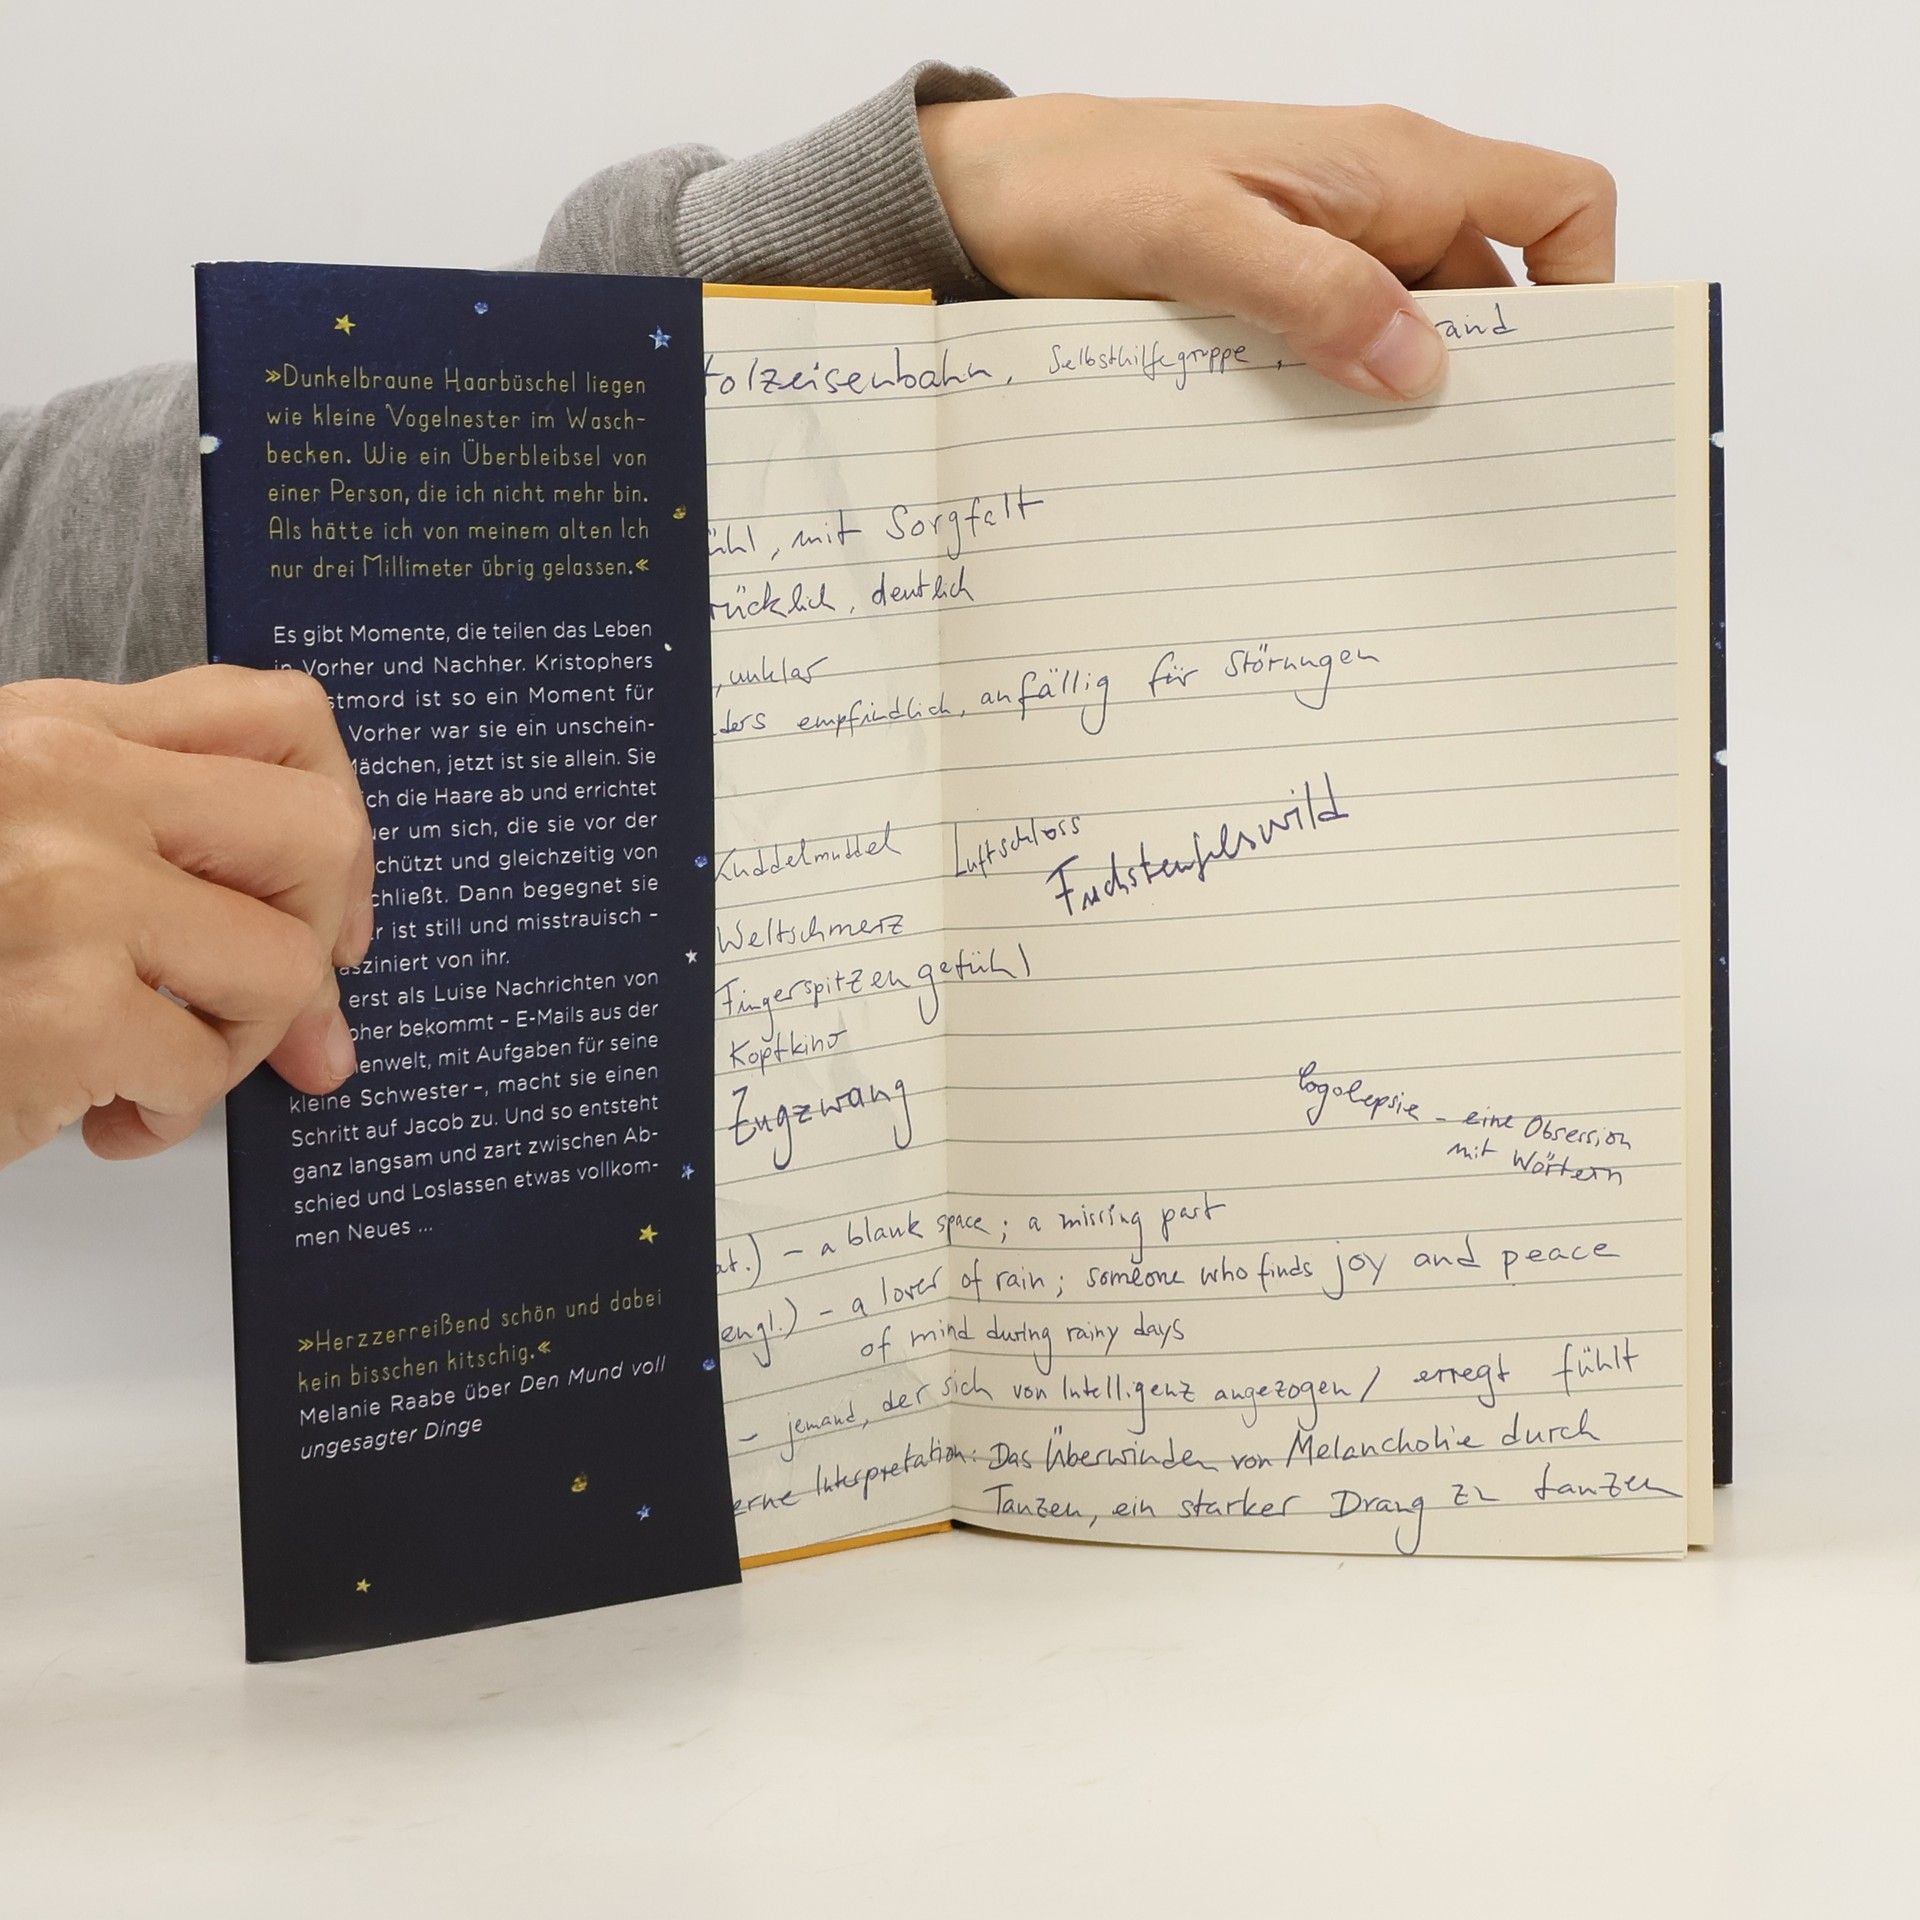 »Dunkelbraune Haarbüschel liegen
wie kleine Vogelnester im Wasch-
becken. Wie ein Überbleibsel von
einer Person, die ich nicht mehr bin.
Als hätte ich von meinem alten Ich
nur drei Millimeter übrig gelassen.«
Es gibt Momente, die teilen das Leben
in Vorher und Nachher. Kristophers
stmord ist so ein Moment für
Vorher war sie ein unschein-
Mädchen, jetzt ist sie allein. Sie
ich die Haare ab und errichtet
uer um sich, die sie vor der
chützt und gleichzeitig von
chließt. Dann begegnet sie
r ist still und misstrauisch –
asziniert von ihr.
erst als Luise Nachrichten von
pher bekommt – E-Mails aus der
enwelt, mit Aufgaben für seine
kleine Schwester –, macht sie einen
Schritt auf Jacob zu. Und so entsteht
ganz langsam und zart zwischen Ab-
schied und Loslassen etwas vollkom-
men Neues ...
»Herzzerreißend schön und dabei
kein bisschen kitschig.«
Melanie Raabe über Den Mund voll
ungesagter Dinge
and
olzeisenbahn, Selbsthilfegruppe,
ühl, mit Sorgfalt
rücklich, deutlich
, unklar
ders empfindlich, anfällig für Störungen
Kuddelmuddel Luftschloss
Fuchsteufelswild
Weltschmerz
Fingerspitzengefühl
Kopfkino
Zugzwang
Logolepsie – eine Obsession
mit Wörtern
at.) – a blank space; a missing part
engl.) – a lover of rain; someone who finds joy and peace
of mind during rainy days
– jemand, der sich von Intelligenz angezogen / erregt fühlt
erne Interpretation: Das Überwinden von Melancholie durch
Tanzen, ein starker Drang zu tanzen